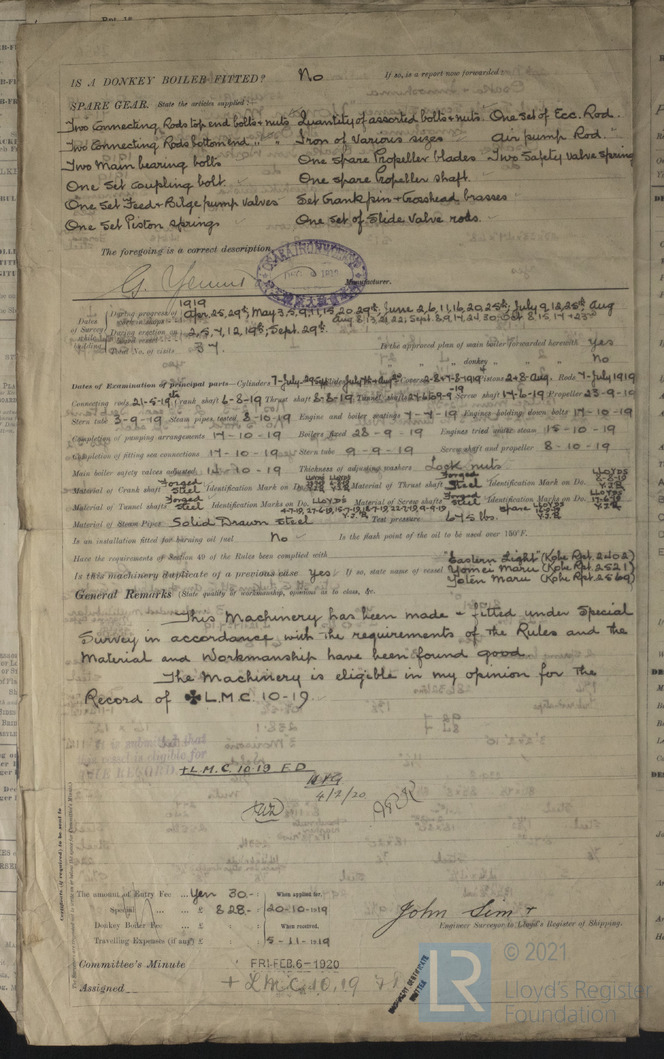 IS A DONKEY BOILER FITTED? No If so, is a report now forwarded?
SPARE GEAR. State the articles supplied:—
Two Connecting Rods top end bolts & nuts Quantity of assorted bolts & nuts. One Set of Ecc. Rod.
Two Connecting Rods bottom end " " Iron of Various sizes " Air pump Rod. "
Two Main bearing bolts One spare Propeller blades Two Safety valve spring
One Set coupling bolt. One spare Propeller shaft.
One Set Feed & Bilge pump valves Set Crankpin & Crosshead brasses
One Set Piston Springs One Set of Slide Valve rods.
The foregoing is a correct description,
Manufacturer.
1919
Dates of Survey while building
During progress of work in shops - - Apr. 25, 29th, May 3, 5, 9, 11, 15, 20, 29th, June 2, 6, 11, 16, 20, 25th, July 9, 12, 25th, Aug
During erection on board vessel - - 2, 5, 7, 12, 19th, Sept. 29th.
Total No. of visits 37.
Is the approved plan of main boiler forwarded herewith Yes
" " " donkey " " " No
Dates of Examination of principal parts—Cylinders Slides Covers Pistons 2 & 8-Aug. Rods 7-July 1919
Connecting rods 21-5-19 Crank shaft 6-8-19 Thrust shaft 8-8-19 Tunnel shafts Screw shaft 17-6-19 Propeller 23-9-19
Stern tube 3-9-19 Steam pipes tested 8-10-19 Engine and boiler seatings 7-7-19 Engines holding down bolts 17-10-19
Completion of pumping arrangements 17-10-19 Boilers fixed 28-9-19 Engines tried under steam 15-10-19
Completion of fitting sea connections 17-10-19 Stern tube 9-9-19 Screw shaft and propeller 8-10-19
Main boiler safety valves adjusted 17-10-19 Thickness of adjusting washers Lock nuts
Material of Crank shaft Forged Steel Identification Mark on Do. Material of Thrust shaft Forged Steel Identification Mark on Do. LLOYDS 8-8-19 Y.J.R
Material of Tunnel shafts Forged Steel Identification Marks on Do. LLOYDS Material of Screw shafts Forged Steel Spare Identification Marks on Do. LLOYDS 17-6-19
Material of Steam Pipes Solid Drawn Steel Test pressure 675 lbs.
Is an installation fitted for burning oil fuel No Is the flash point of the oil to be used over 150°F.
Have the requirements of Section 49 of the Rules been complied with
Is this machinery duplicate of a previous case Yes If so, state name of vessel "Eastern Light" (Kobe Rpt. 2402) Yomei Maru (Kobe Rpt 2521) Yoten Maru (Kobe Rpt. 2569)
General Remarks (State quality of workmanship, opinions as to class, &c.
This Machinery has been made & fitted under Special
Survey in accordance with the requirements of the Rules and the
Material and Workmanship have been found good.
The Machinery is eligible in my opinion for the
Record of ✠ L.M.C. 10-19.
It is submitted that
this vessel is eligible for
THE RECORD + L.M.C. 10.19 F.D
4/2/20
The amount of Entry Fee ... Yen 30.- : When applied for,
Special ... ... £ 828.- : 20-10-1919
Donkey Boiler Fee ... £ : : When received,
Travelling Expenses (if any) £ : : 5-11-1919
John Sim
Engineer Surveyor to Lloyd's Register of Shipping.
Committee's Minute FRI. FEB. 6-1920
Assigned + L.M.C. 10.19
MACHINERY CERTIFICATE WRITTEN
LR
© 2021
Lloyd's Register
Foundation